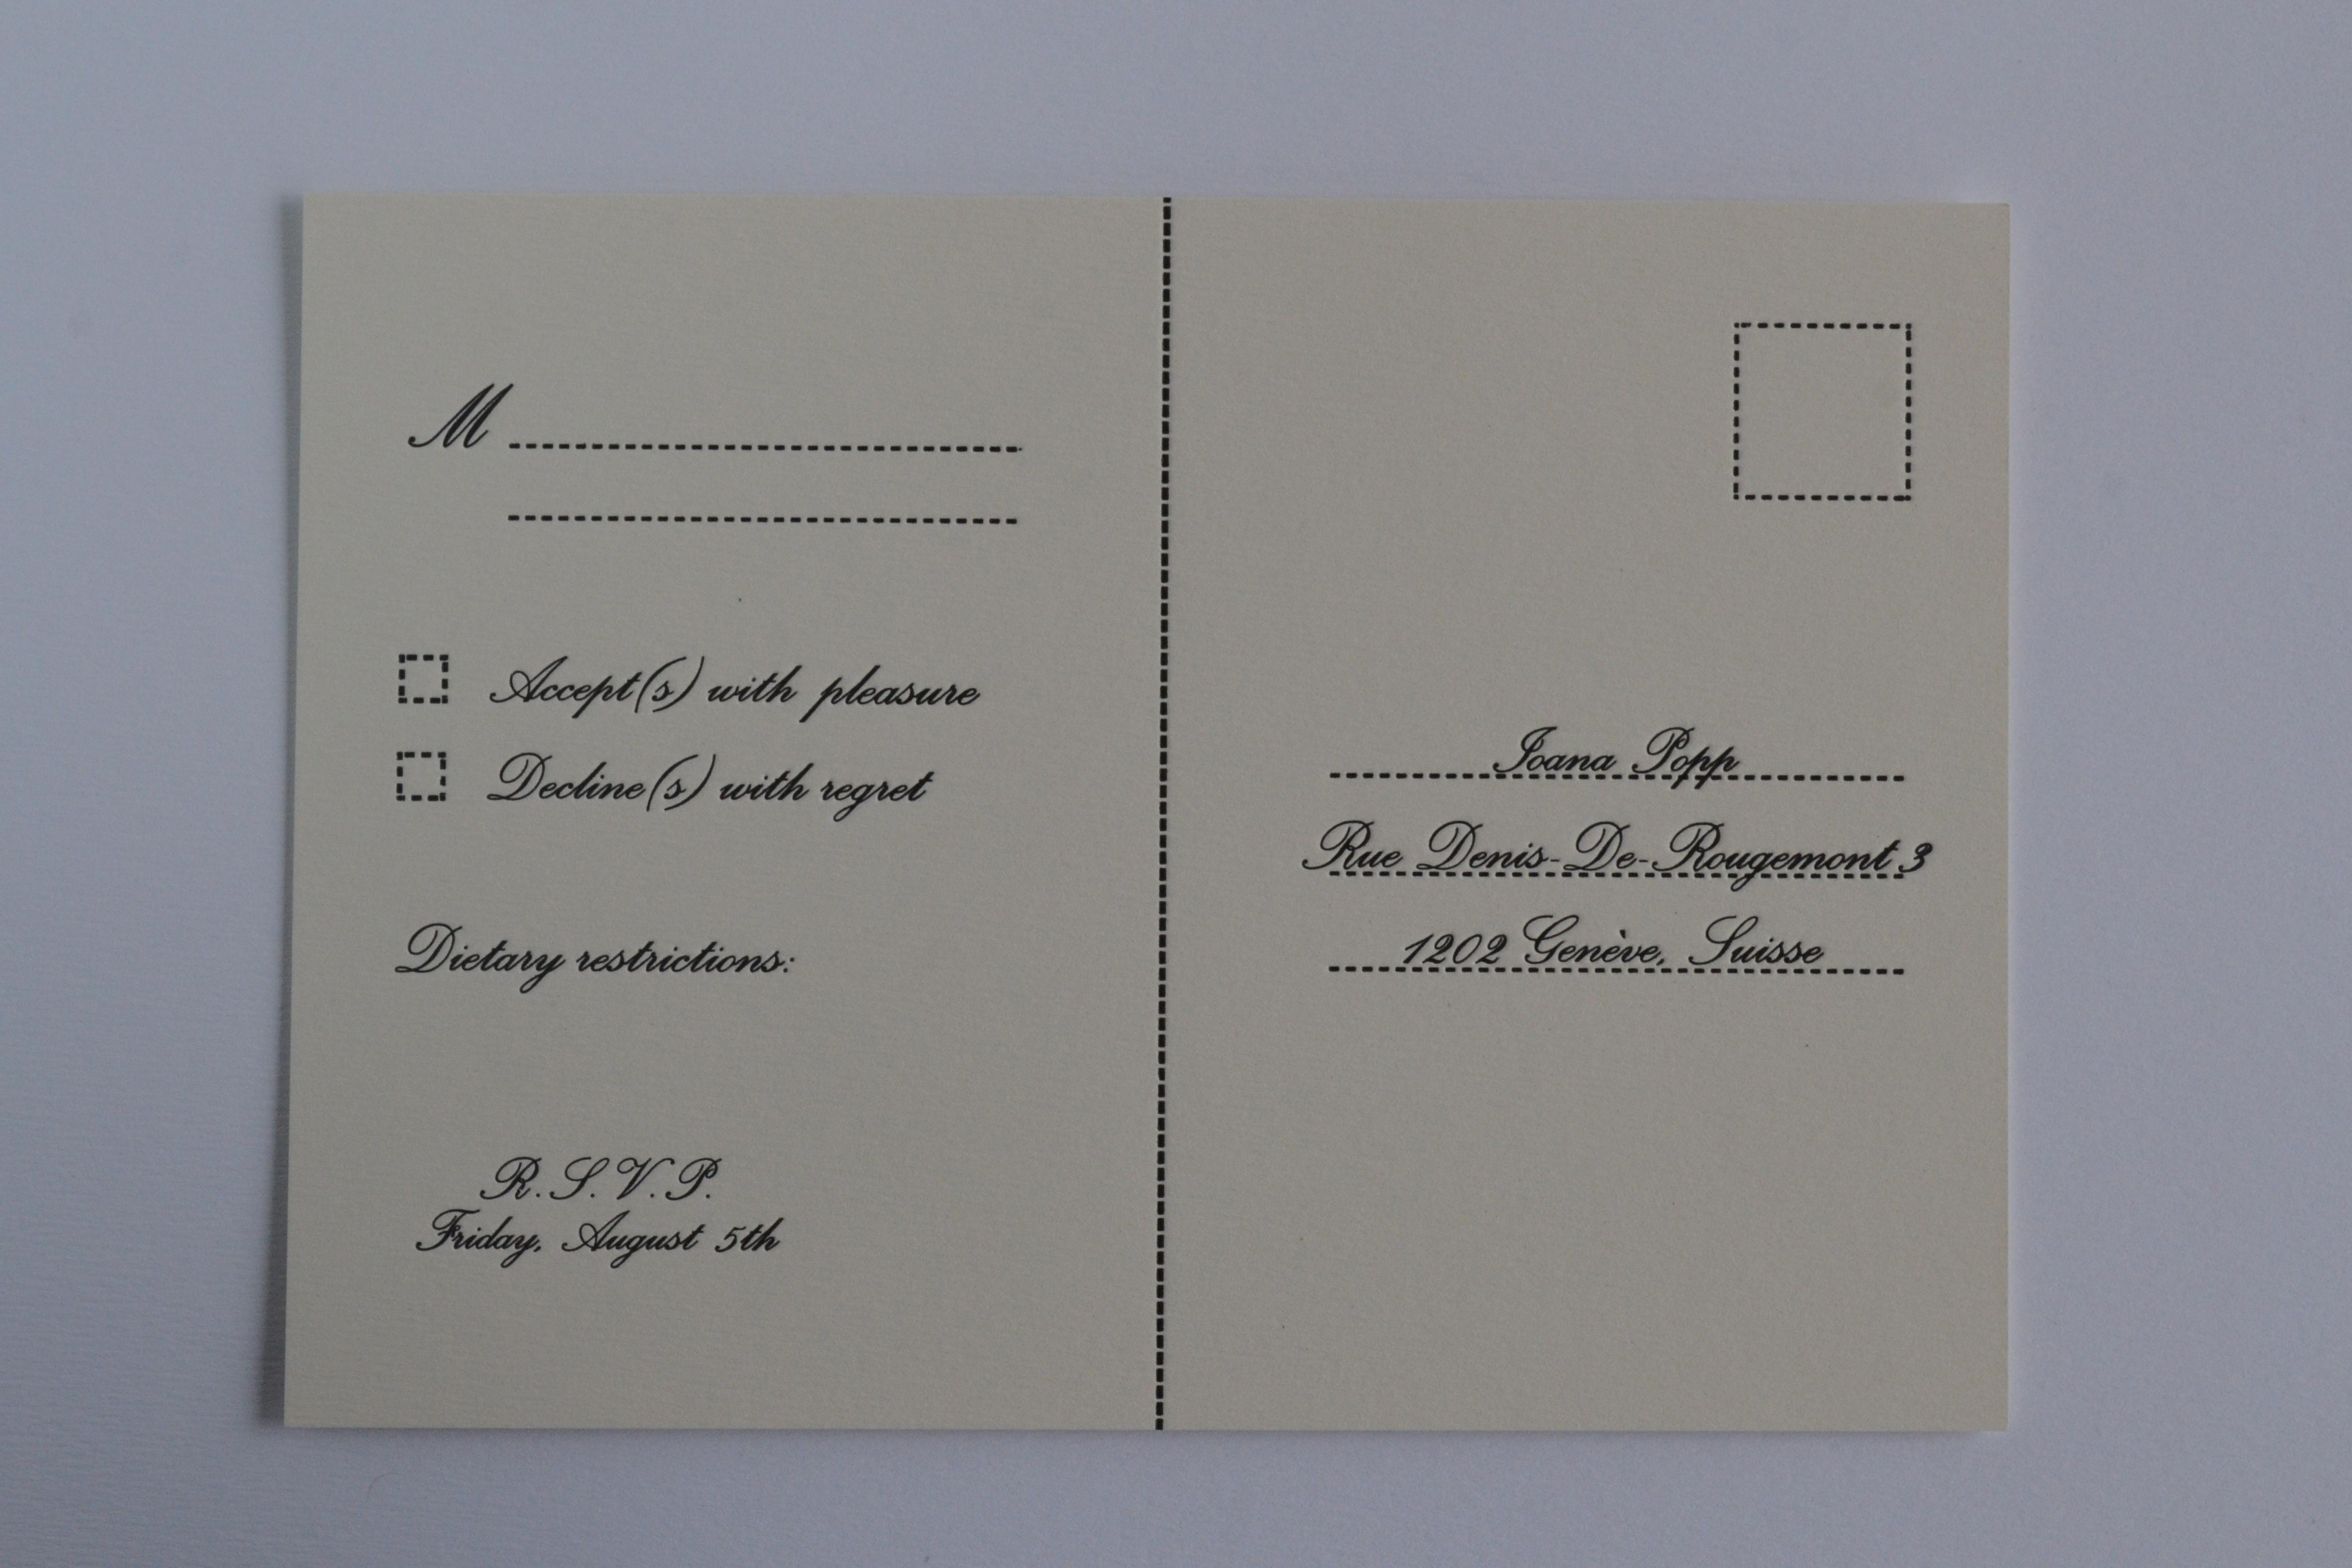 M
Accept(s) with pleasure
Decline(s) with regret
Dietary restrictions:
R.S.V.P.
Friday, August 5th
Ioana Popp
Rue Denis-De-Rougemont 3
1202 Genève, Suisse